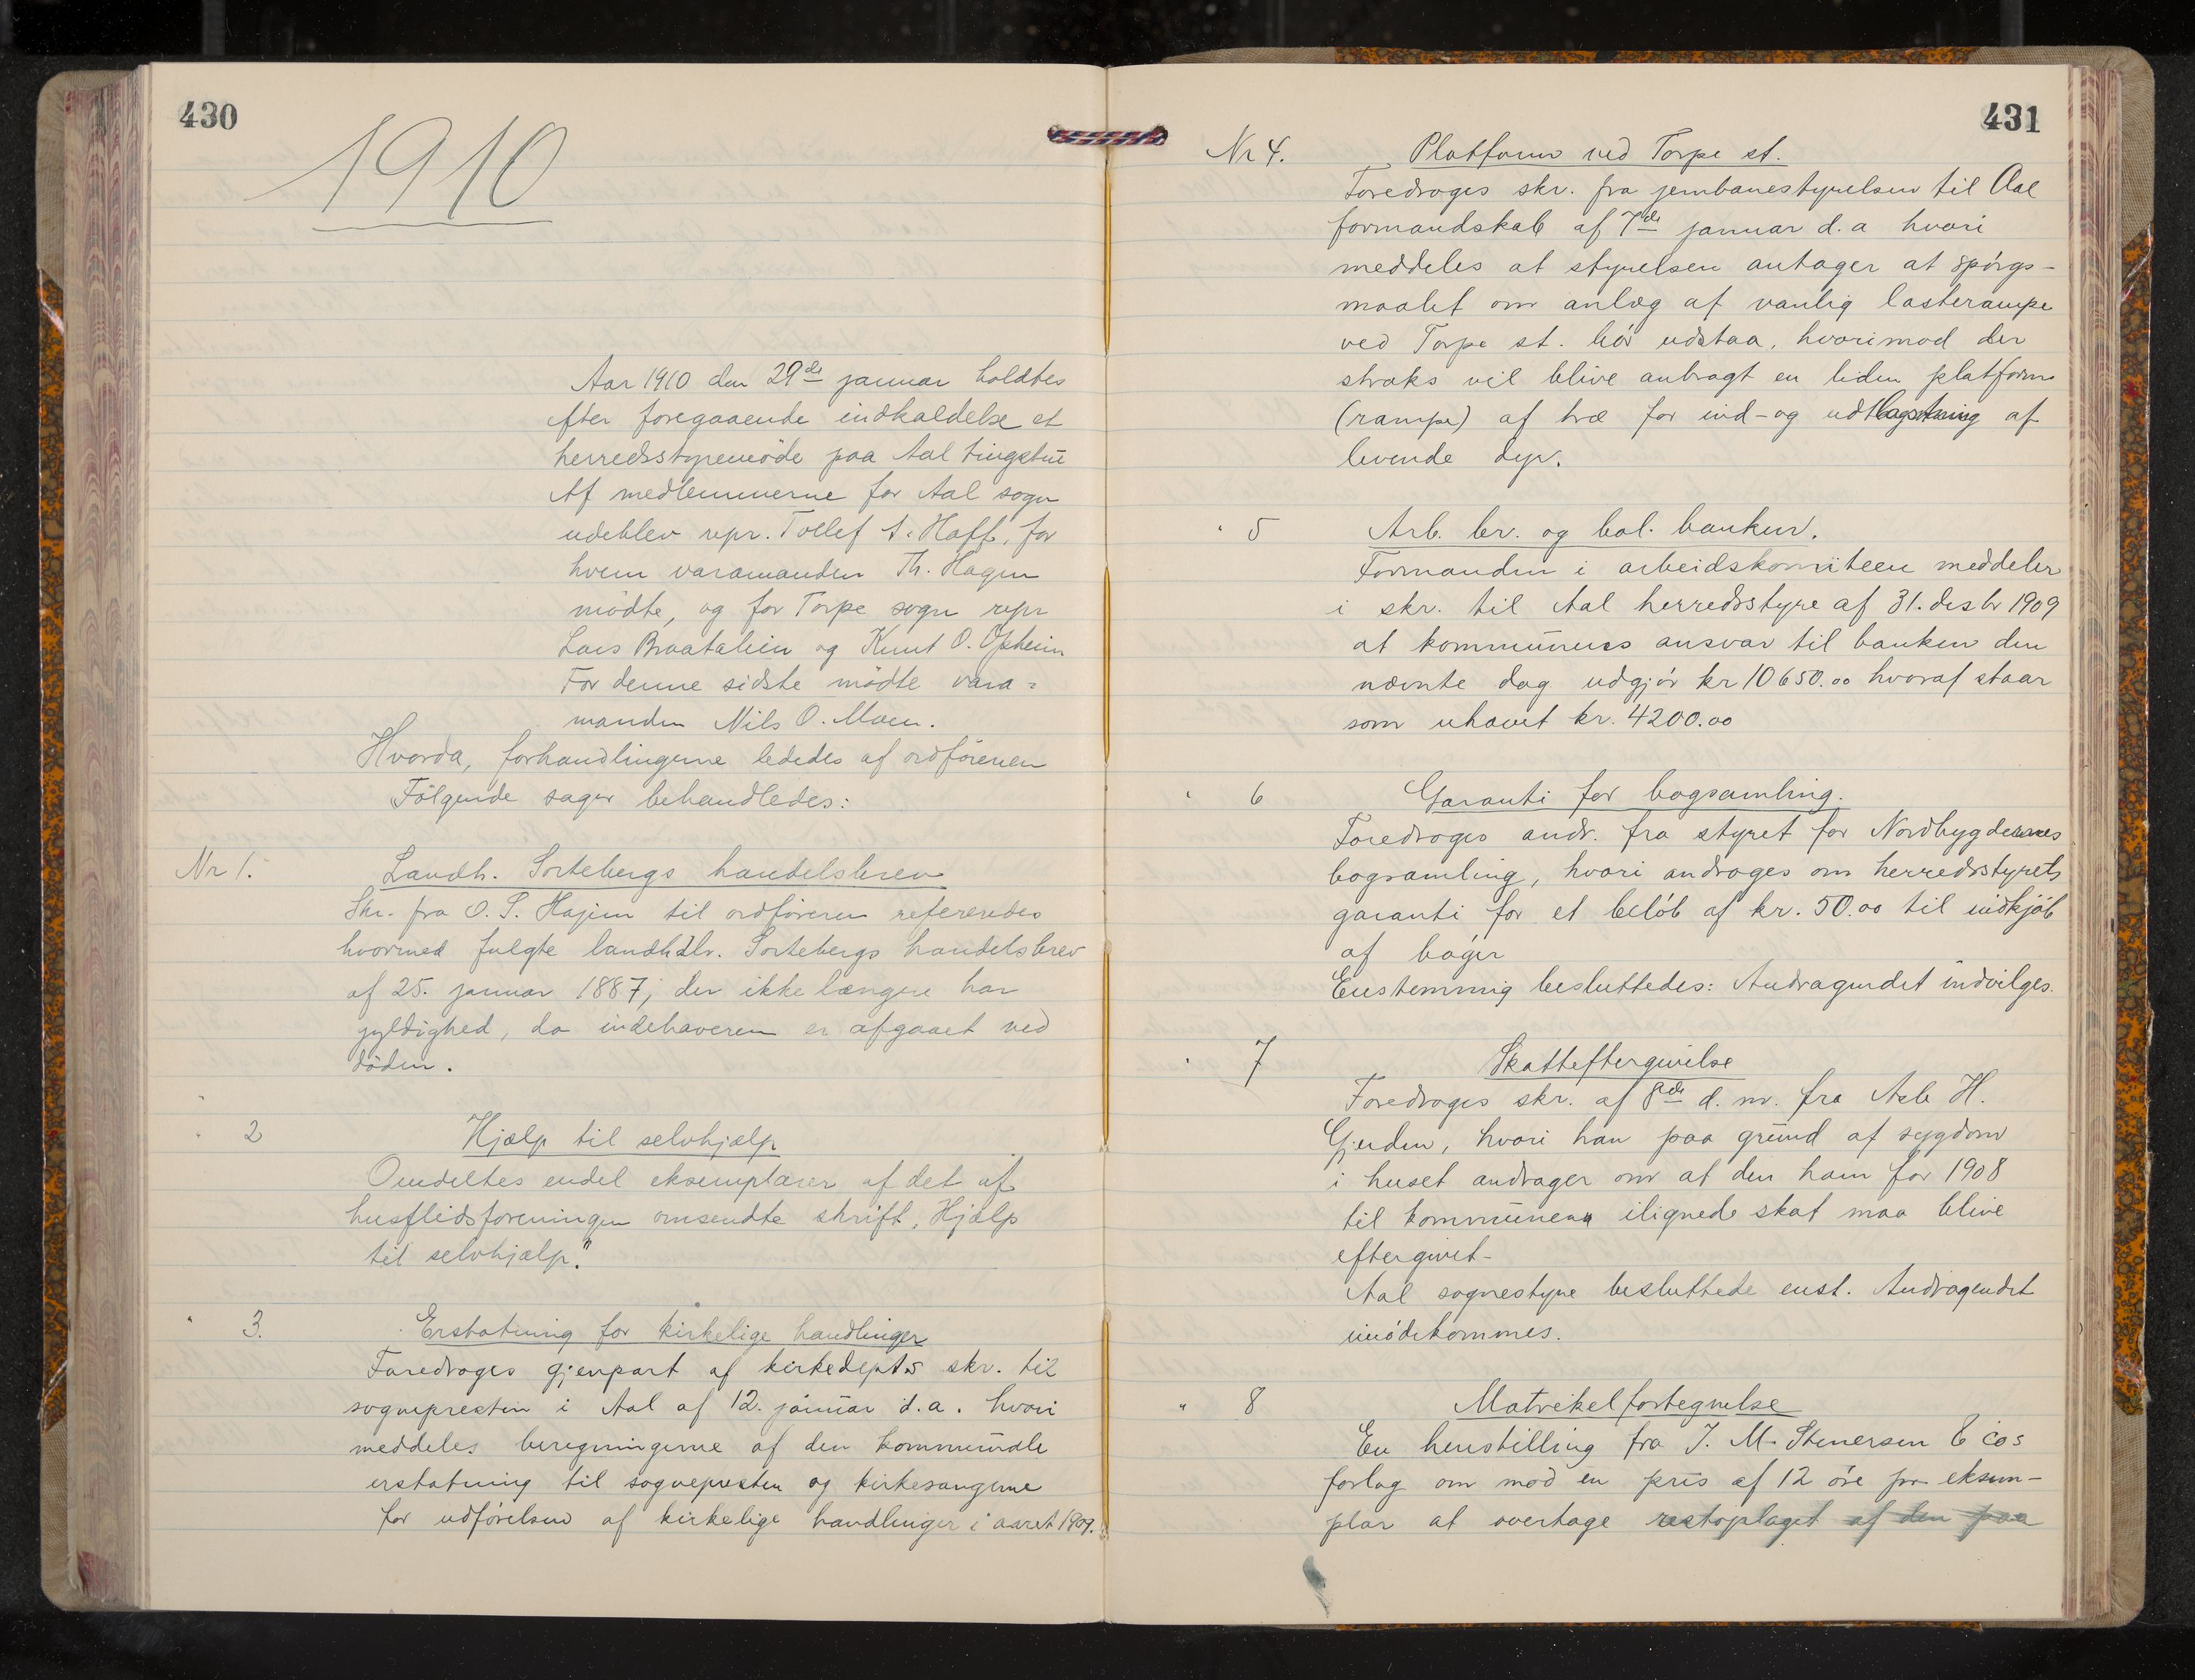 430
1910
Aar 1910 den 29de januar holdtes
efter foregaaende indkaldelse et
herredsstyremöde paa Aal tingstue
Af medlemmerne for Aal sogn
udeblev repr. Tollef A. Hoff, for
hvem varamanden Th. Hagen
mödte, og for Torpe sogn repr
Lars Braatalien og Knut O. Opheim
For denne sidste mödte vara=
manden Nils O. Moen.
Hvorda, forhandlingerne lededes af ordföreren
Fölgende sager behandledes:
Nr 1.
Landh. Sortebergs handelsbrev
Skr. fra O. S. Hajem til ordföreren refereredes
hvormed fulgte landhdlr. Sortebergs handelsbrev
af 25. januar 1887, der ikke længere har
gyldighed, da indehaveren er afgaaet ved
döden.
" 2
Hjælp til selvhjælp
Omdeltes endel eksemplarer af det af
husflidsforeningen omsendte skrift, Hjælp
til selvhjælp."
" 3.
Erstatning for kirkelige handlinger
Foredroges gjenpart af kirkedepts skr. til
sogneprestin i Aal af 12. januar d.a. hvori
meddeles beregningerne af den kommunale
erstatning til sognepresten og kirkesangerne
for udförelsen af kirkelige handlinger i aaret 1909.
431
Nr 4.
Platform ved Torpe st.
Foredroges skr. fra jernbanestyrelsen til Aal
formandskab af 7de januar d.a hvori
meddeles at styrelsen antager at spörgs-
maalet om anlæg af vanlig lasterampe
ved Torpe st. bör udstaa, hvorimod der
straks vil blive anbragt en liden platform
(rampe) af træ for ind-og udlastning af
levende dyr.
" 5
Arb. br. og bol. banken.
Formanden i arbeidskomiteen meddeler
i skr. til Aal herredsstyre af 31. desbr 1909
at kommunens ansvar til banken den
nævnte dag udgjör kr 10650.00 hvoraf staar
som uhævet kr. 4200.00
" 6
Garanti for bogsamling.
Foredroges andr. fra styret for Nordbygdernes
bogsamling, hvori androges om herredsstyrets
garanti for et belöb af kr. 50.00 til indkjöb
af böger
Enstemmig besluttedes: Andragendet indvilges.
" 7
Skatteftergivelse
Foredroges skr. af 8de d. m. fra Asle H.
Gjerden, hvori han paa grund af sygdom
i huset andrager om at den ham for 1908
til kommunen ilignede skat maa blive
eftergivet-
Aal sognestyre besluttede enst. Andragendet
imödekommes.
" 8
Matrikelfortegnelse
En henstilling fra J. M. Stenersen & cos
forlag om mod en pris af 12 öre pr eksem-
plar at overtage restoplaget af den paa